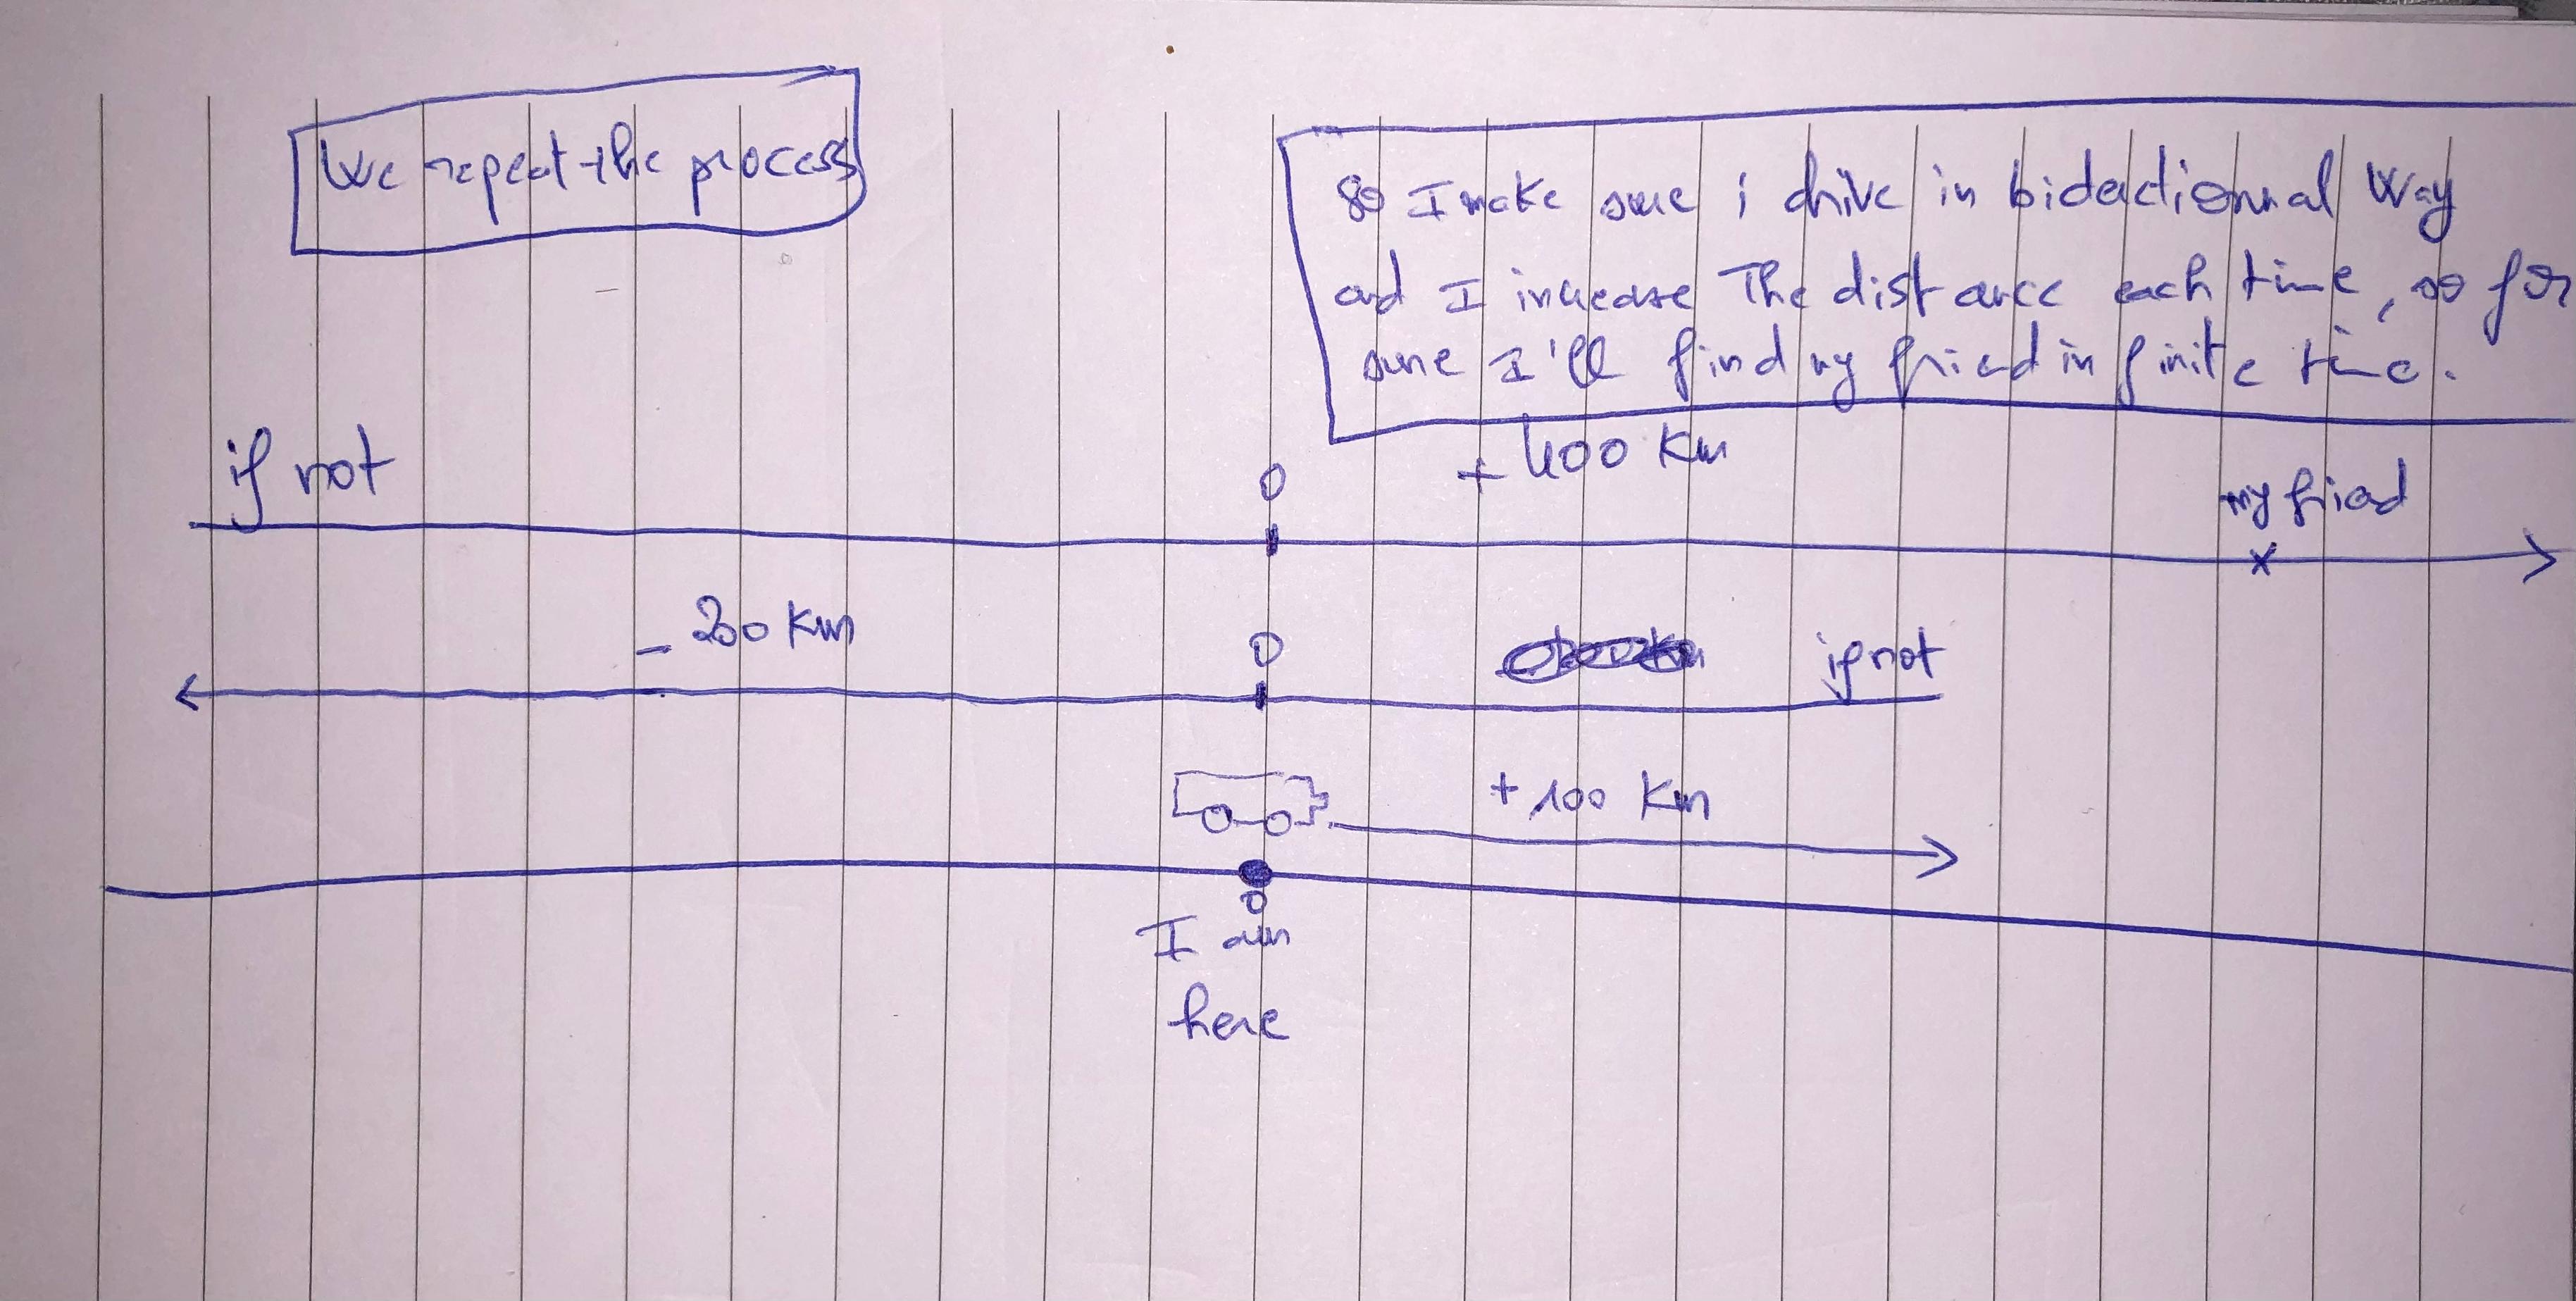 We repeat the process
So I make sure i drive in bidectionnal way
and I increase The distance each time, so for
sure I'll find my friend in finite time.
+ 400 Km
if not
0
my friend
- 200 Km
0
if not
+ 100 Km
0
I am
here